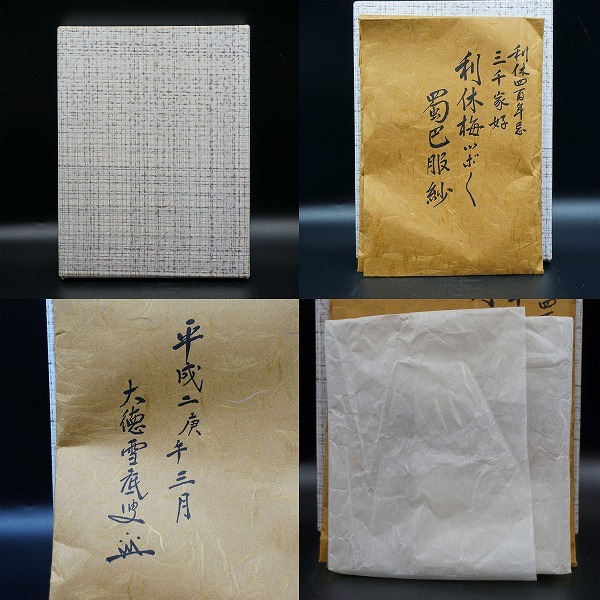 利休四百年忌
三千家好
利休梅ツボ〳〵
蜀巴服紗
平成二庚午三月
大徳雪底叟